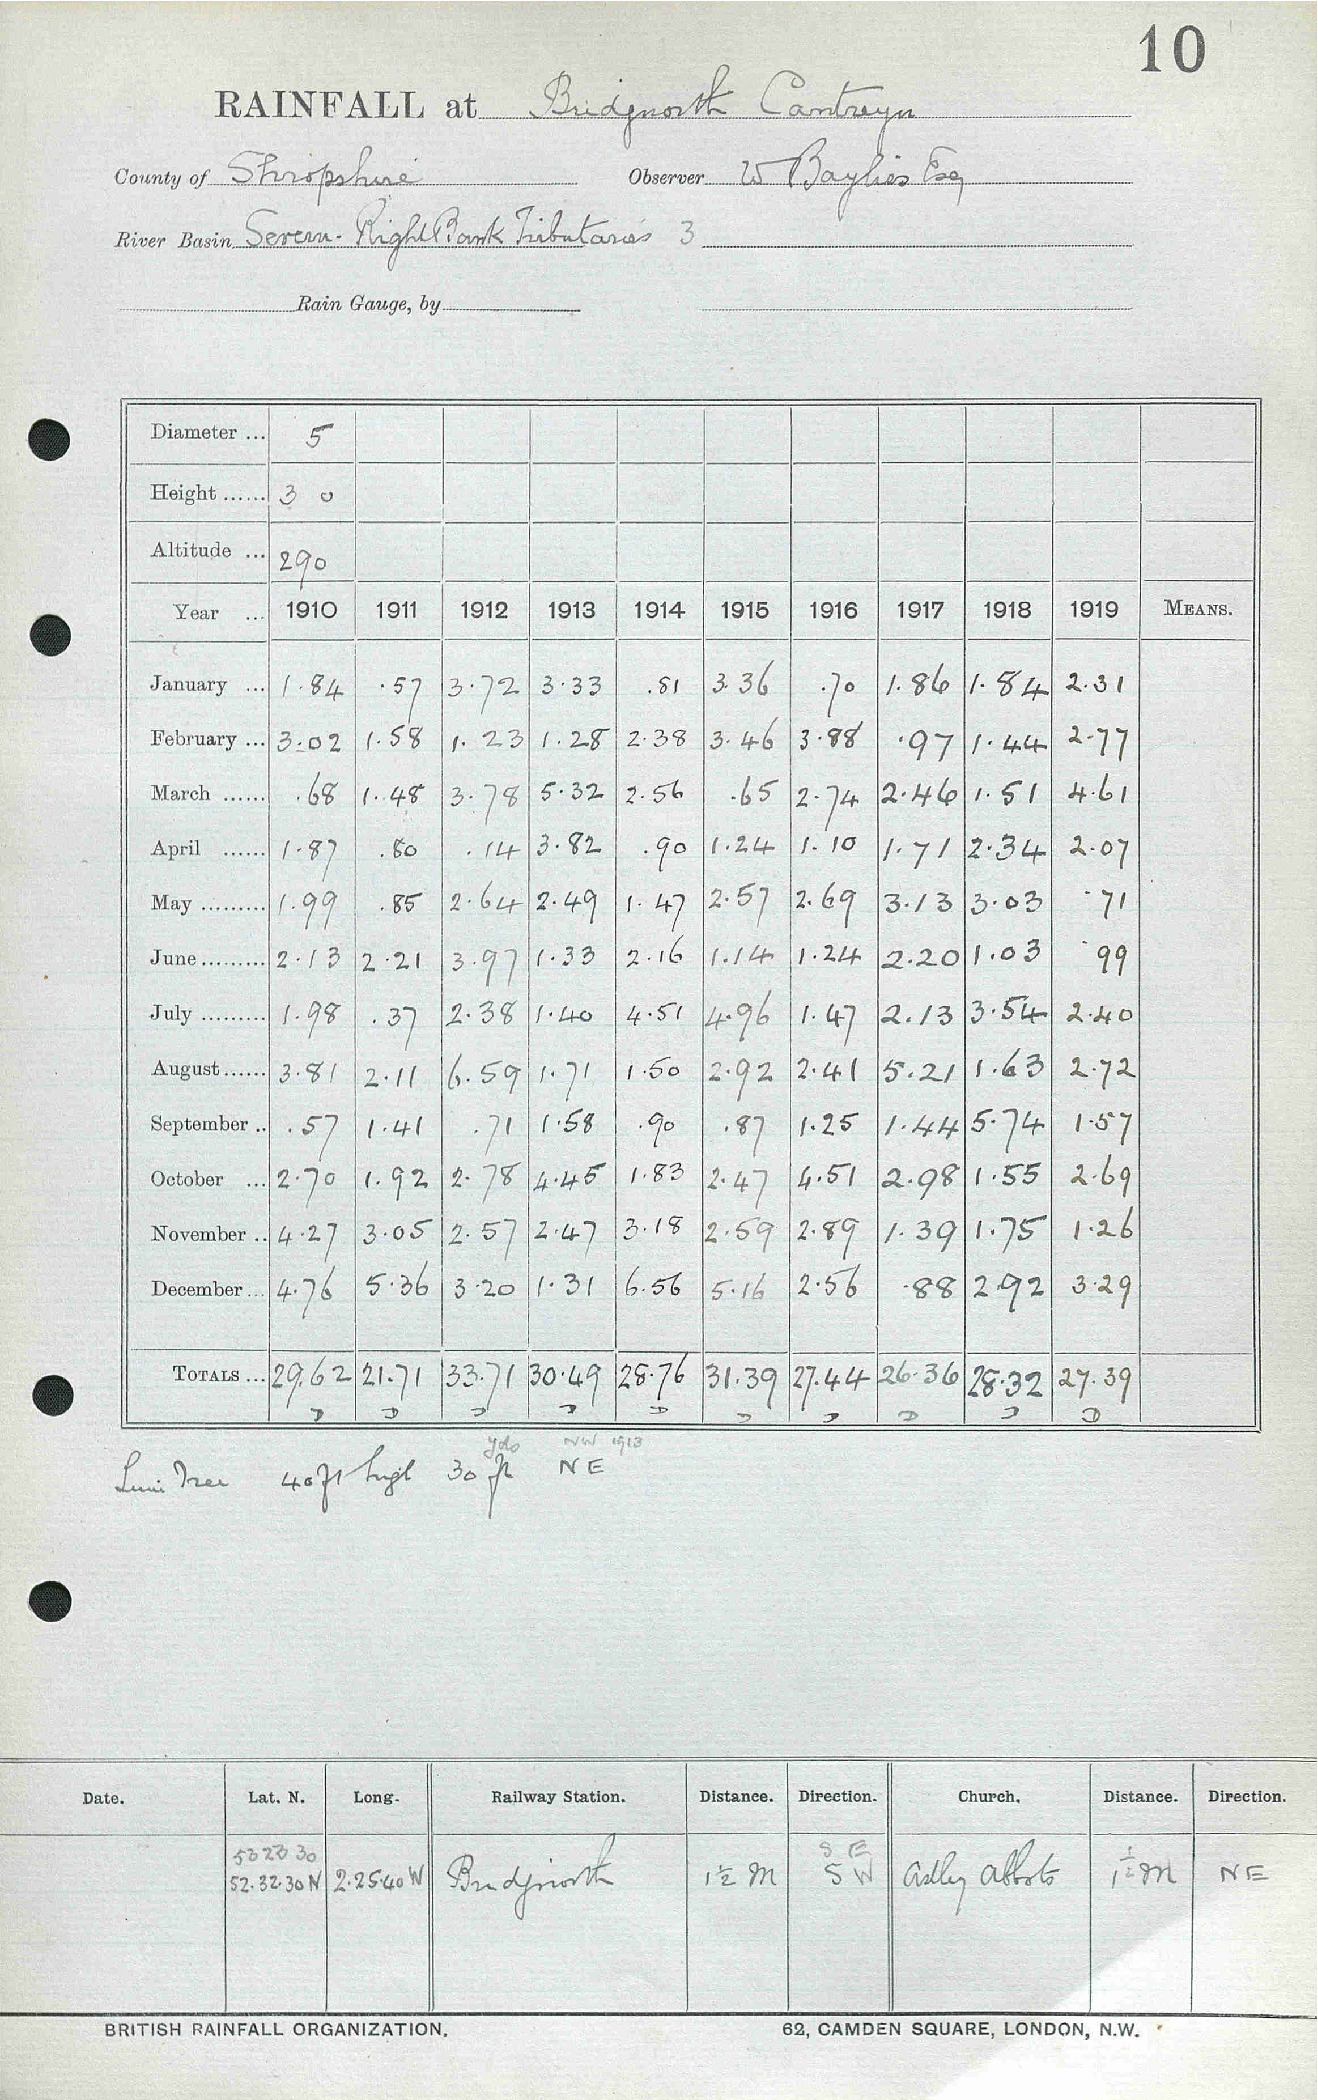 10
RAINFALL at Bridgnorth Cantreyn
County of Shropshire Observer W Baylies Esq
River Basin Severn - Right Bank Tributaries 3
Rain Gauge, by
Diameter ... 5
Height ...... 3 0
Altitude ... 290
Year ... 1910 1911 1912 1913 1914 1915 1916 1917 1918 1919 MEANS.
January ... 1.84 .57 3.72 3.33 .81 3.36 .70 1.86 1.84 2.31
February ... 3.02 1.58 1.23 1.28 2.38 3.46 3.88 .97 1.44 2.77
March ...... .68 1.48 3.78 5.32 2.56 .65 2.74 2.46 1.51 4.61
April ...... 1.87 .80 .14 3.82 .90 1.24 1.10 1.71 2.34 2.07
May ......... 1.99 .85 2.64 2.49 1.47 2.57 2.69 3.13 3.03 .71
June ......... 2.13 2.21 3.97 1.33 2.16 1.14 1.24 2.20 1.03 .99
July ......... 1.98 .37 2.38 1.40 4.51 4.96 1.47 2.13 3.54 2.40
August ...... 3.81 2.11 6.59 1.71 1.50 2.92 2.41 5.21 1.63 2.72
September .. .57 1.41 .71 1.58 .90 .87 1.25 1.44 5.74 1.57
October ... 2.70 1.92 2.78 4.45 1.83 2.47 4.51 2.98 1.55 2.69
November .. 4.27 3.05 2.57 2.47 3.18 2.59 2.89 1.39 1.75 1.26
December ... 4.76 5.36 3.20 1.31 6.56 5.16 2.56 .88 2.92 3.29
TOTALS ... 29.62 21.71 33.71 30.49 28.76 31.39 27.44 26.36 28.32 27.39
yds NW 1913
Tree 40 ft high 30 ft NE
Date. Lat. N. Long. Railway Station. Distance. Direction. Church. Distance. Direction.
S E
52.32.30 N 2.25.40 W Bridgnorth 1½ M S W Astley Abbots 1½ M NE
BRITISH RAINFALL ORGANIZATION. 62, CAMDEN SQUARE, LONDON, N.W.